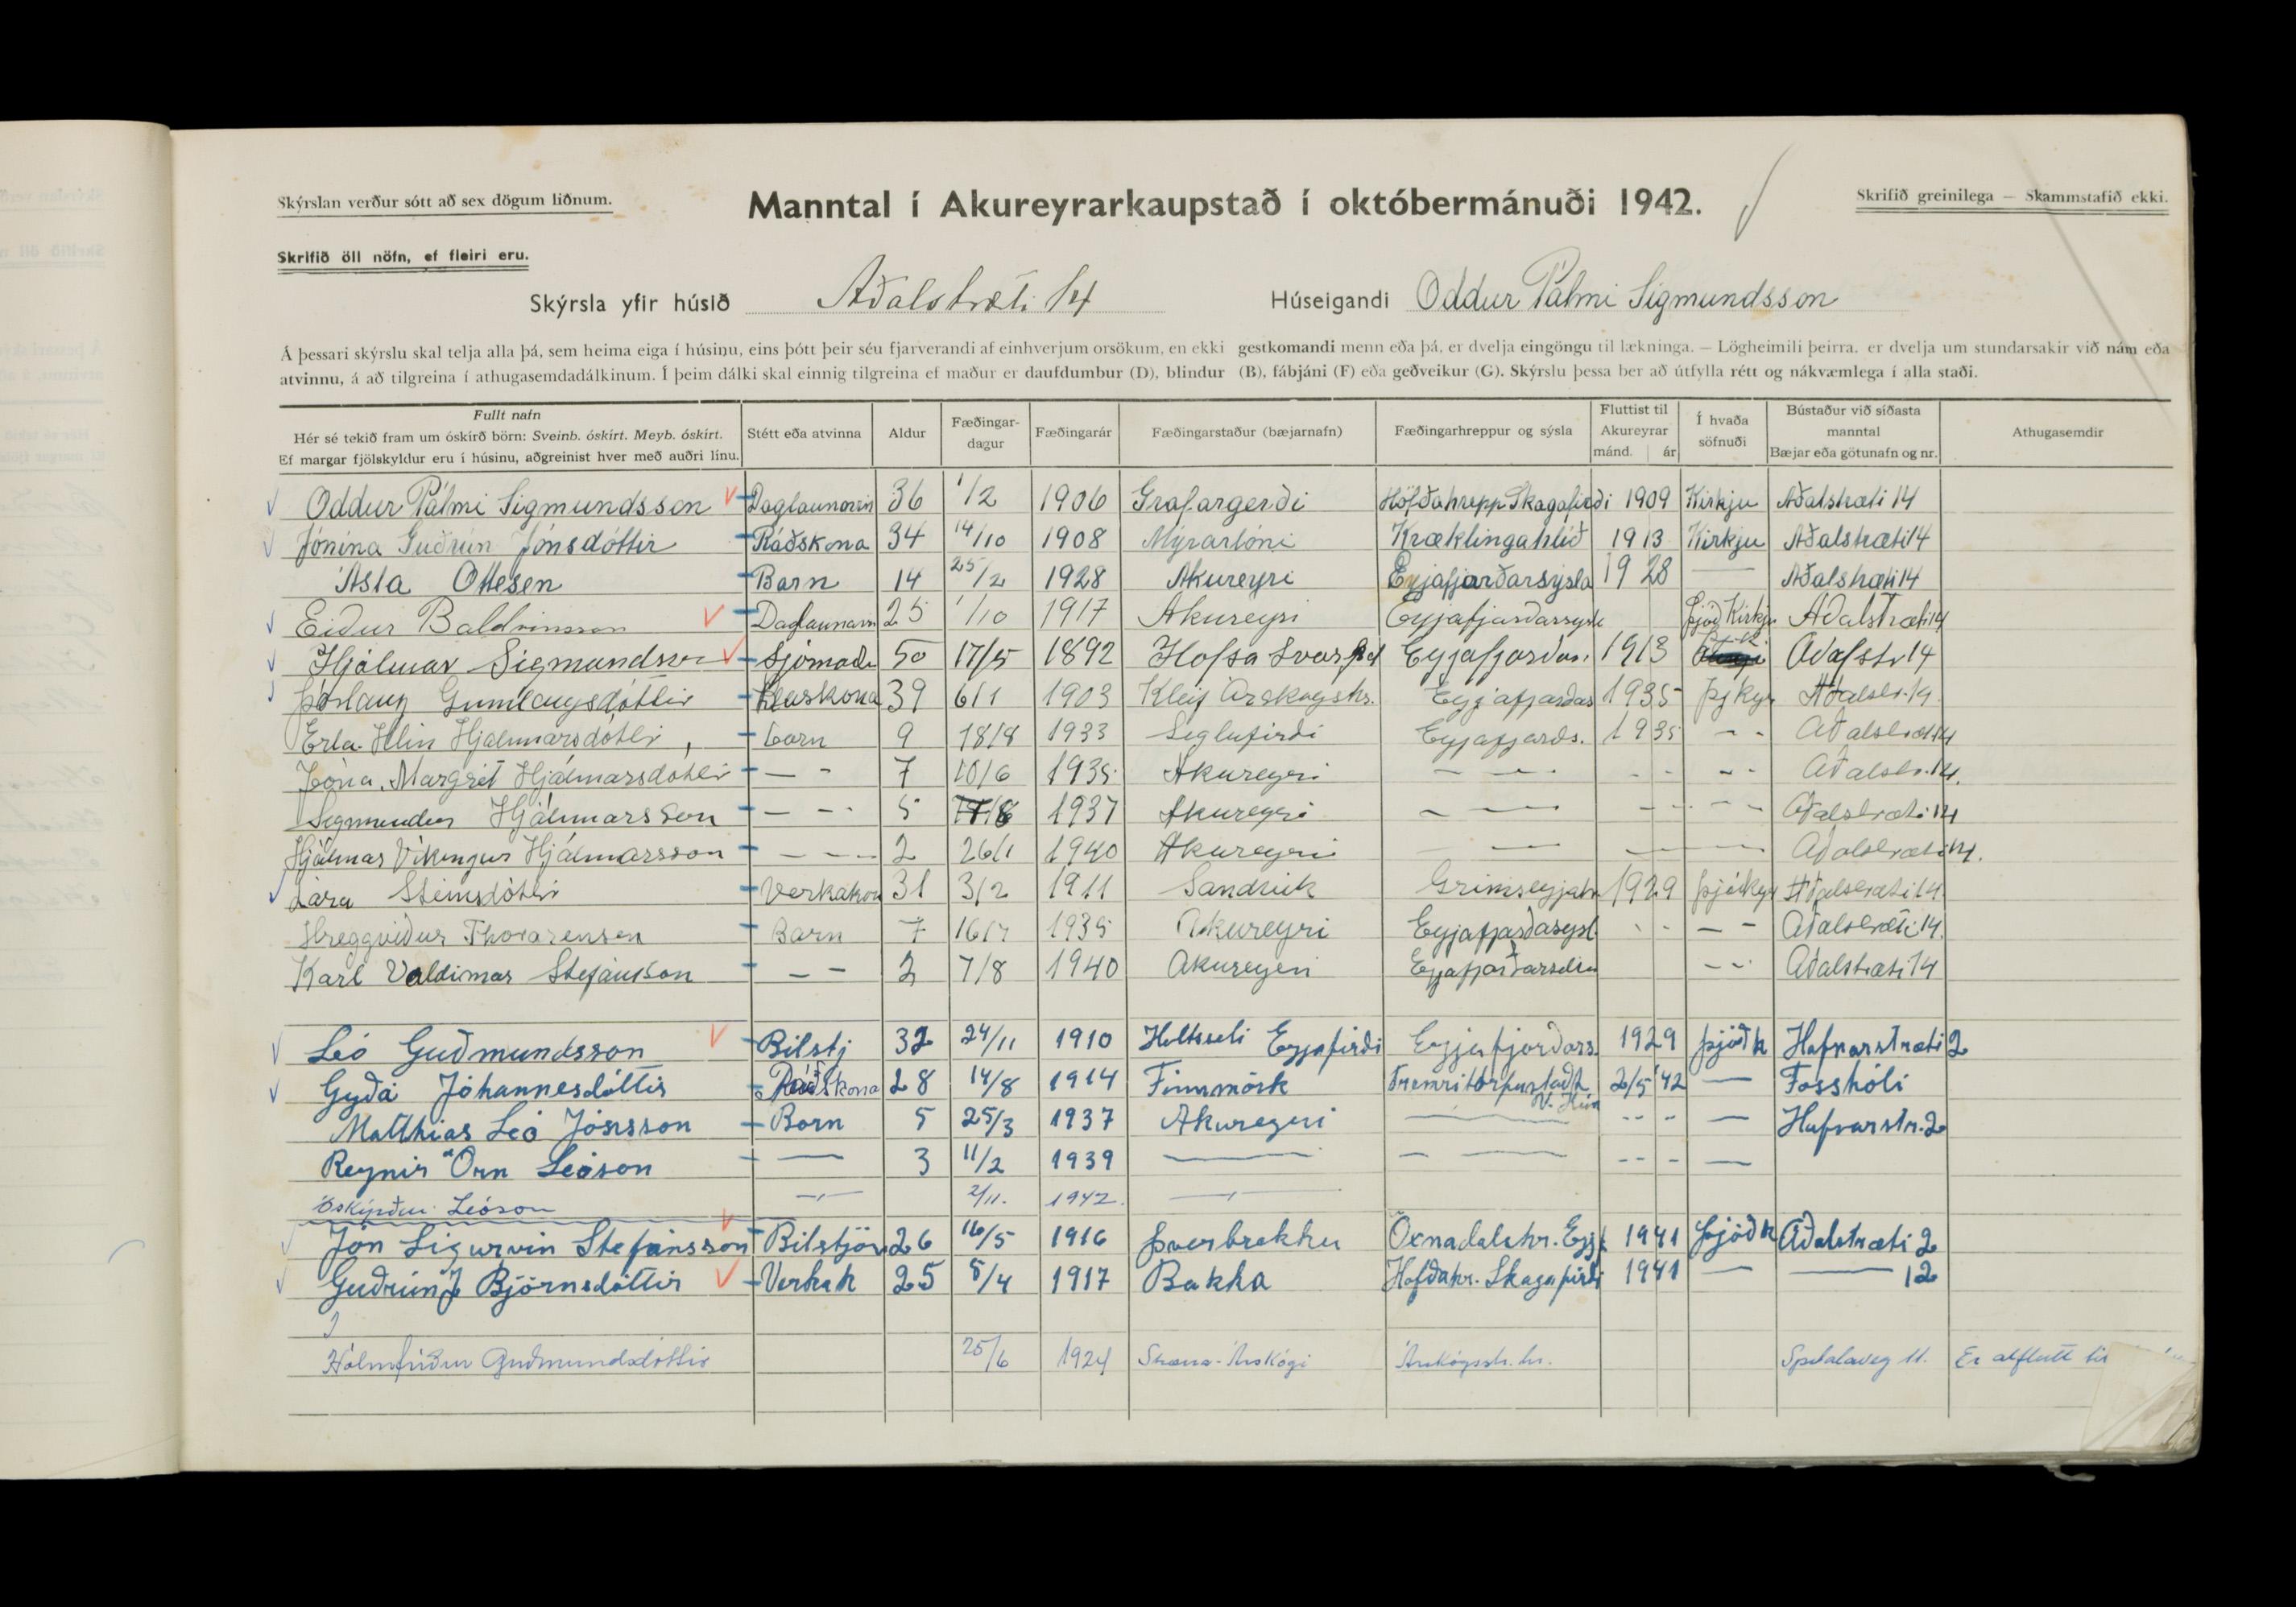 Skýrslan verður sótt að sex dögum liðnum.
Manntal í Akureyrarkaupstað í októbermánuði 1942.
Skrifið greinilega — Skammstafið ekki.
Skrifið öll nöfn, ef fleiri eru.
Skýrsla yfir húsið Aðalstræti 14 Húseigandi Oddur Pálmi Sigmundsson
Á þessari skýrslu skal telja alla þá, sem heima eiga í húsinu, eins þótt þeir séu fjarverandi af einhverjum orsökum, en ekki gestkomandi menn eða þá, er dvelja eingöngu til lækninga. — Lögheimili þeirra, er dvelja um stundarsakir við nám eða
atvinnu, á að tilgreina í athugasemdadálkinum. Í þeim dálki skal einnig tilgreina ef maður er daufdumbur (D), blindur (B), fábjáni (F) eða geðveikur (G). Skýrslu þessa ber að útfylla rétt og nákvæmlega í alla staði.
Fullt nafn
Hér sé tekið fram um óskírð börn: Sveinb. óskírt. Meyb. óskírt.
Ef margar fjölskyldur eru í húsinu, aðgreinist hver með auðri línu.
Stétt eða atvinna
Aldur
Fæðingar-
dagur
Fæðingarár
Fæðingarstaður (bæjarnafn)
Fæðingarhreppur og sýsla
Fluttist til
Akureyrar
mánd. ár
Í hvaða
söfnuði
Bústaður við síðasta
manntal
Bæjar eða götunafn og nr.
Athugasemdir
Oddur Pálmi Sigmundsson Daglaunam 36 1/2 1906 Grafargerði Höfðahrepp Skagafirði 1909 Kirkju Aðalstræti 14
Jónína Guðrún Jónsdóttir Ráðskona 34 14/10 1908 Mýrarlóni Kræklingahlíð 1913 Kirkju Aðalstræti 14
Ásta Ottesen Barn 14 25/2 1928 Akureyri Eyjafjarðarsýsla 1928 — Aðalstræti 14
Eiður Baldvinsson Daglaunam 25 1/10 1917 Akureyri Eyjafjarðarsýsl Þjóð Kirkju Aðalstræti 14
Hjálmar Sigmundsson Sjómaður 50 17/5 1892 Hofsá Svarf Eyjafjarðar. 1913 Aðalstr 14
Þórlaug Gunnlaugsdóttir Húskona 39 6/1 1903 Kleif Árskógshr. Eyjafjarðar 1935 Þjkyr Aðalstr. 14
Erla Hlín Hjálmarsdóttir, barn 9 18/8 1933 Siglufirði Eyjafjarðs. 1935 - - Aðalstræti 14
Jóna Margrét Hjálmarsdóttir — - 7 10/6 1935 Akureyri - — - - - - - Aðalstr. 14.
Sigmundur Hjálmarsson — - - 5 1937 Akureyri - — - - - - Aðalstræti 14
Hjálmar Víkingur Hjálmarsson - - - 2 26/1 1940 Akureyri - — — — Aðalstræti 14.
Lára Steinsdóttir Verkakon 31 3/2 1911 Sandvík Grímseyjahr 1929 Þjóðkyr Aðalstræti 14
Hreggviður Thorarensen Barn 7 16/7 1935 Akureyri Eyjafjarðasýsl - - — - Aðalstræti 14.
Karl Valdimar Stefánsson — — 2 7/8 1940 Akureyri - - Aðalstræti 14
Leó Guðmundsson Bílstj 32 24/11 1910 Holtsseli Eyjafirði Eyjafjorðars. 1929 Þjóðk Hafnarstræti 2
Gyða Jóhannesdóttir Ráðskona 28 14/8 1914 Finnmörk Fremritorfustaðh V. Hún 2/5 '42 — Fosshóli
Matthías Leó Jónsson Born 5 25/3 1937 Akureyri — - - - — Hafnarstr. 2
Reynir Örn Leóson — 3 11/2 1939 — - — - - - —
Óskýrður Leóson —"— 2/11. 1942. —"—
Jón Sigurvin Stefánsson Bílstjór 26 16/5 1916 Þverbrekku Öxnadalshr. Eyjf 1941 Þjóðk Aðalstræti 2
Guðrún J Björnsdóttir Verkak 25 5/4 1917 Bakka Hofðahr. Skagafirði 1941 — — 12
J
Hólmfríður Guðmundsdóttir 25/6 1924 Stærra-Árskógi Árskógsstr. hr. Spítalaveg 11. Er alflutt til